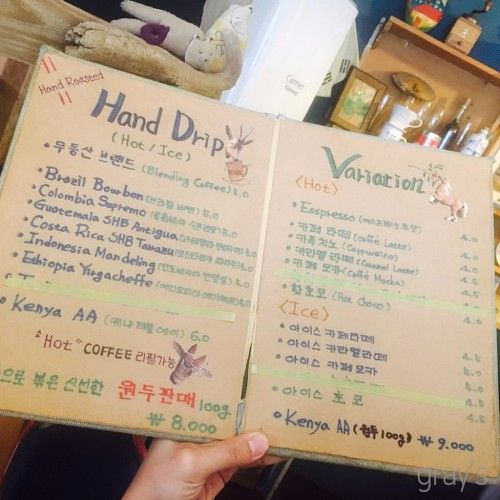 Hand Roasted
Hand Drip
(Hot / Ice)
• 무등산 브랜드 (Blending Coffee) 5.0
• Brazil Bourbon 5.0
• Colombia Supremo 5.0
• Guatemala SHB Antigua 5.0
• Costa Rica SHB Tarrazu 5.0
• Indonesia Mandeling 5.0
• Ethiopia Yirgacheffe 5.0
• Kenya AA (케냐 더블 에이) 6.0
"Hot" COFFEE 리필가능
으로 볶은 신선한 원두판매 100g
₩ 8,000
Variation
<Hot>
• Esspresso 4.0
• 카페 라떼 (Caffé Latte) 4.0
• 카푸치노 (Cappuccino)
• 카라멜 라떼 (Caramel Latte)
• 카페 모카 (Caffé Mocha)
• 핫초코 (Hot Choco) 4.0
<Ice>
• 아이스 카페라떼
• 아이스 카라멜라떼 4.5
• 아이스 카페모카
• 아이스 초코 4.5
• Kenya AA (원두 100g) ₩ 9,000
gray's